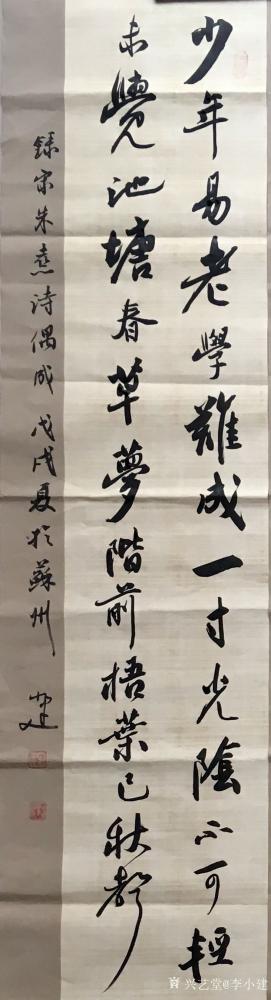 少年易老學難成一寸光陰不可輕
未覺池塘春草夢階前梧葉已秋聲
錄宋朱熹诗偶成 戊戌夏於蘇州
兴艺堂@李小建